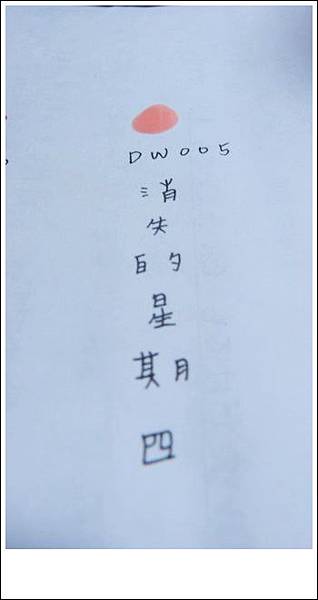 DW005
消失的星期四